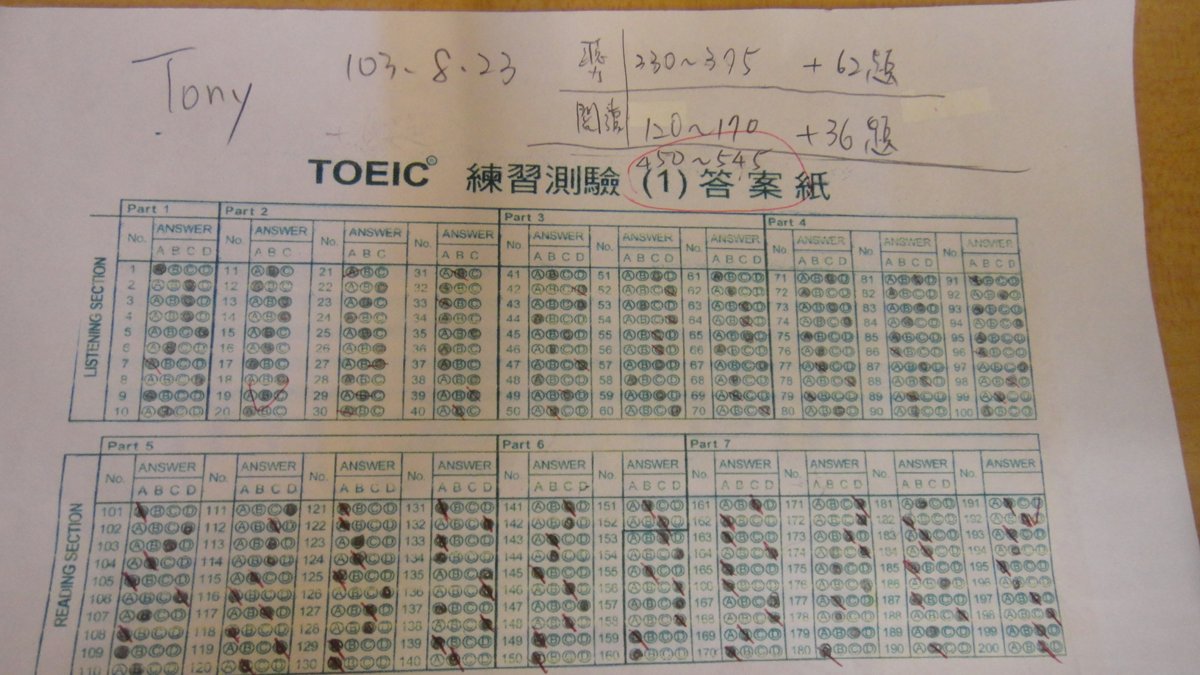 Tony 103.8.23 聽力 330~375 +62題
閱讀 120~170 +36題
450~545
TOEIC® 練習測驗 (1) 答案紙
Part 1 Part 2 Part 3 Part 4
No. ANSWER No. ANSWER No. ANSWER No. ANSWER No. ANSWER No. ANSWER No. ANSWER No. ANSWER No. ANSWER No. ANSWER
A B C D A B C A B C A B C A B C D A B C D A B C D A B C D A B C D A B C D
LISTENING SECTION
1 11 21 31 41 51 61 71 81 91
2 12 22 32 42 52 62 72 82 92
3 13 23 33 43 53 63 73 83 93
4 14 24 34 44 54 64 74 84 94
5 15 25 35 45 55 65 75 85 95
6 16 26 36 46 56 66 76 86 96
7 17 27 37 47 57 67 77 87 97
8 18 28 38 48 58 68 78 88 98
9 19 29 39 49 59 69 79 89 99
10 20 30 40 50 60 70 80 90 100
Part 5 Part 6 Part 7
No. ANSWER No. ANSWER No. ANSWER No. ANSWER No. ANSWER No. ANSWER No. ANSWER No. ANSWER No. ANSWER No. ANSWER
A B C D A B C D A B C D A B C D A B C D A B C D A B C D A B C D A B C D A B C D
READING SECTION
101 111 121 131 141 151 161 171 181 191
102 112 122 132 142 152 162 172 182 192
103 113 123 133 143 153 163 173 183 193
104 114 124 134 144 154 164 174 184 194
105 115 125 135 145 155 165 175 185 195
106 116 126 136 146 156 166 176 186 196
107 117 127 137 147 157 167 177 187 197
108 118 128 138 148 158 168 178 188 198
109 119 129 139 149 159 169 179 189 199
110 120 130 140 150 160 170 180 190 200